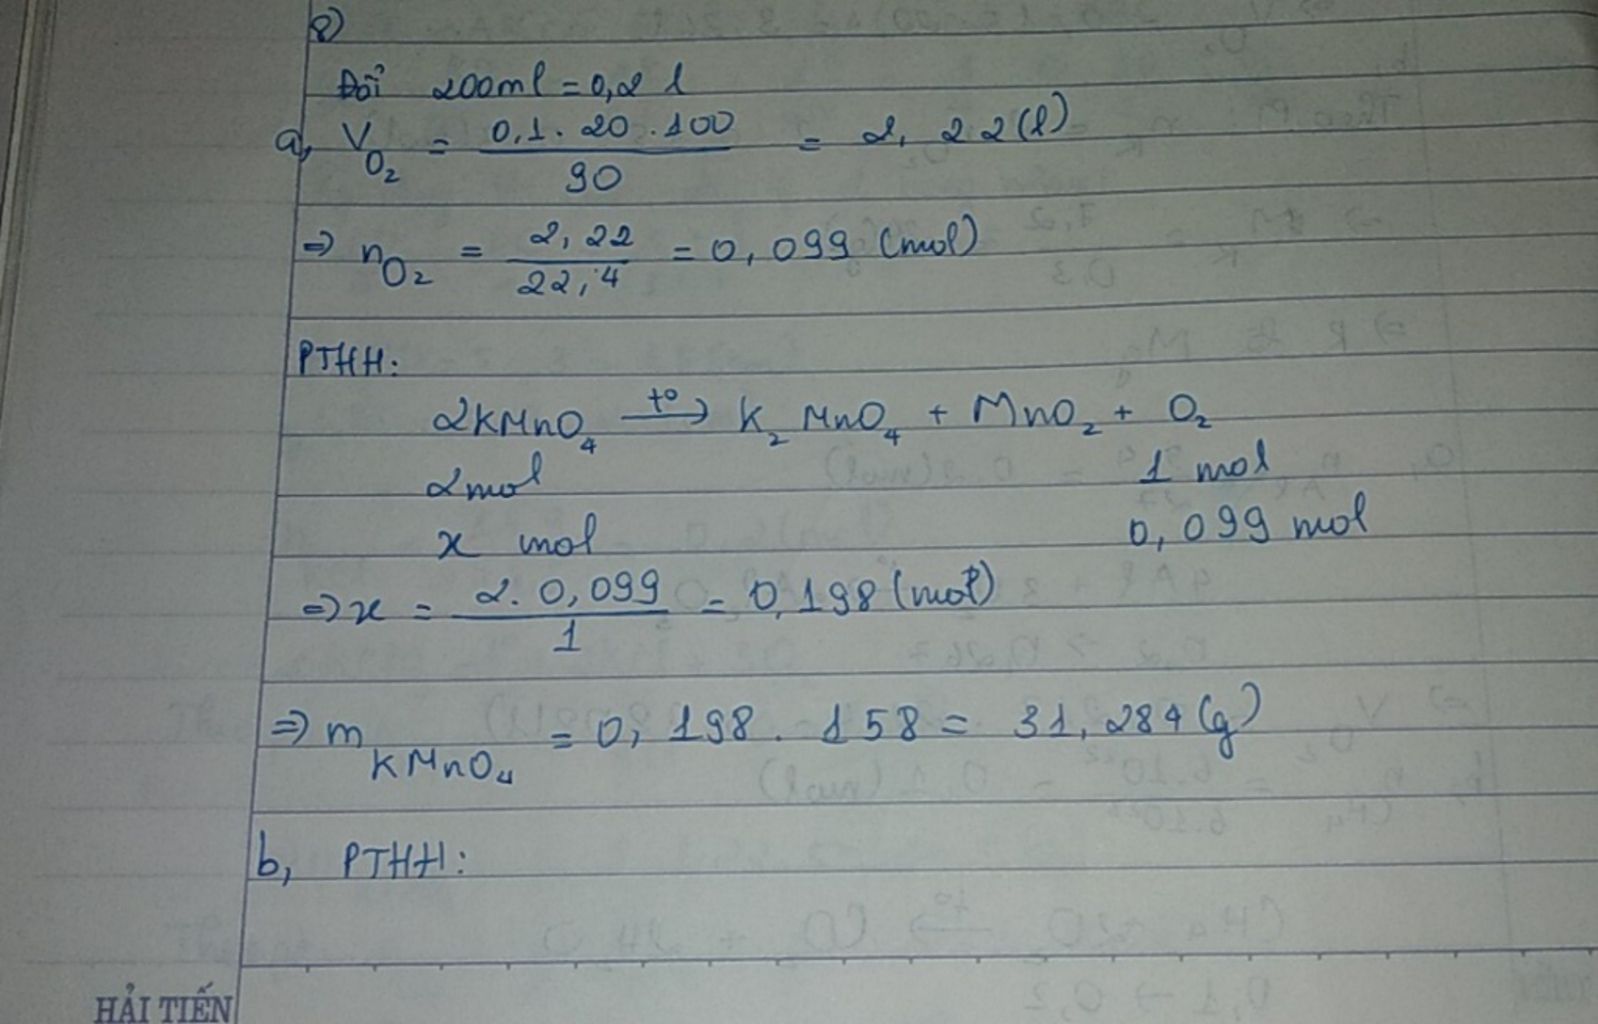 8)
Đổi 200ml = 0,2 l
a, V O₂ = 0,1 . 20 . 100 / 90 = 2,22 (l)
=> n O₂ = 2,22 / 22,4 = 0,099 (mol)
PTHH:
2KMnO₄ —t°→ K₂MnO₄ + MnO₂ + O₂
2mol 1 mol
x mol 0,099 mol
=> x = 2. 0,099 / 1 = 0,198 (mol)
=> m KMnO₄ = 0,198 . 158 = 31,284 (g)
b, PTHH:
HẢI TIẾN